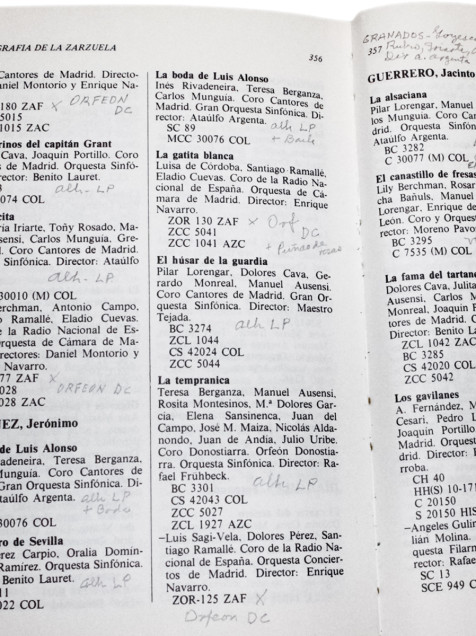 GRAFIA DE LA ZARZUELA
Cantores de Madrid. Directo-
aniel Montorio y Enrique Na-
180 ZAF x ORFEON
DC
5015
1015 ZAC
rinos del capitán Grant
Cava, Joaquín Portillo. Coro
s de Madrid. Orquesta Sinfó-
rector: Benito Lauret.
alh. LP
074 COL
cita
ría Iriarte, Toñy Rosado, Ma-
usensi, Carlos Munguía. Gre-
l. Coro Cantores de Madrid.
Sinfónica. Director: Ataúlfo
alh- LP
30010 (M) COL
erchman, Antonio Campo,
o Ramallé, Eladio Cuevas.
e la Radio Nacional de Es-
rquesta de Cámara de Ma-
rectores: Daniel Montorio y
Navarro.
77 ZAF x
028 ORFEON DC
028
EZ, Jerónimo
de Luis Alonso
vadeneira, Teresa Berganza,
Munguía. Coro Cantores de
Gran Orquesta Sinfónica. Di-
taúlfo Argenta. alh LP
+ Boda
30076 COL
ro de Sevilla
érez Carpio, Oralia Domín-
Ramírez. Orquesta Sinfónica.
Benito Lauret. alh LP
11
022 COL
356
La boda de Luis Alonso
Inés Rivadeneira, Teresa Berganza,
Carlos Munguía. Coro Cantores de
Madrid. Gran Orquesta Sinfónica. Di-
rector: Ataúlfo Argenta.
SC 89 alh LP
MCC 30076 COL + Baile
La gatita blanca
Luisa de Córdoba, Santiago Ramallé,
Eladio Cuevas. Coro de la Radio Na-
cional de España. Orquesta de Cá-
mara de Madrid. Director: Enrique
Navarro.
ZOR 130 ZAF x Orf
ZCC 5041 DC
ZCC 1041 AZC +
El húsar de la guardia
Pilar Lorengar, Dolores Cava, Ge-
rardo Monreal, Manuel Ausensi.
Coro Cantores de Madrid. Gran Or-
questa Sinfónica. Director: Maestro
Tejada.
BC 3274 alh LP
ZCL 1044
CS 42024 COL
ZCC 5044
La tempranica
Teresa Berganza, Manuel Ausensi,
Rosita Montesinos, M.ª Dolores Gar-
cía, Elena Sansinenca, Juan del
Campo, José M. Maiza, Nicolás Alda-
nondo, Juan de Andía, Julio Uribe.
Coro Donostiarra. Orfeón Donostia-
rra. Orquesta Sinfónica. Director: Ra-
fael Frühbeck.
BC 3301 alh LP
CS 42043 COL
ZCC 5027
ZCL 1927 AZC
–Luis Sagi-Vela, Dolores Pérez, San-
tiago Ramallé. Coro de la Radio Na-
cional de España. Orquesta Concier-
tos de Madrid. Director: Enrique
Navarro.
ZOR-125 ZAF X
Orfeon DC
GRANADOS-
357
GUERRERO, Jacinto
La alsaciana
Pilar Lorengar, Manuel
los Munguía. Coro Can
drid. Orquesta Sinfón
Ataúlfo Argenta.
BC 3282
C 30077 (M) COL
El canastillo de fresas
Lily Berchman, Rosar
cha Bañuls, Manuel
Lorengar, Enrique de
León. Coro y Orquest
rector: Moreno Pavo
BC 3295
C 7535 (M) COL
La fama del tartan
Dolores Cava, Julita
Ausensi, Carlos M
Monreal, Joaquín P
tores de Madrid. C
Director: Benito La
ZCL 1042 ZAC
BC 3285
CS 42020 COL
ZCC 5042
Los gavilanes
A. Fernández, M
Cesari, Pedro L
Joaquín Portillo
Madrid. Orques
drid. Director: R
rroba.
CH 40
HH(S) 10-17
C 20150
S 20150 HIS
–Angeles Gulín
lián Molina.
questa Filarm
rector: Rafae
SC 13
SCE 949 C